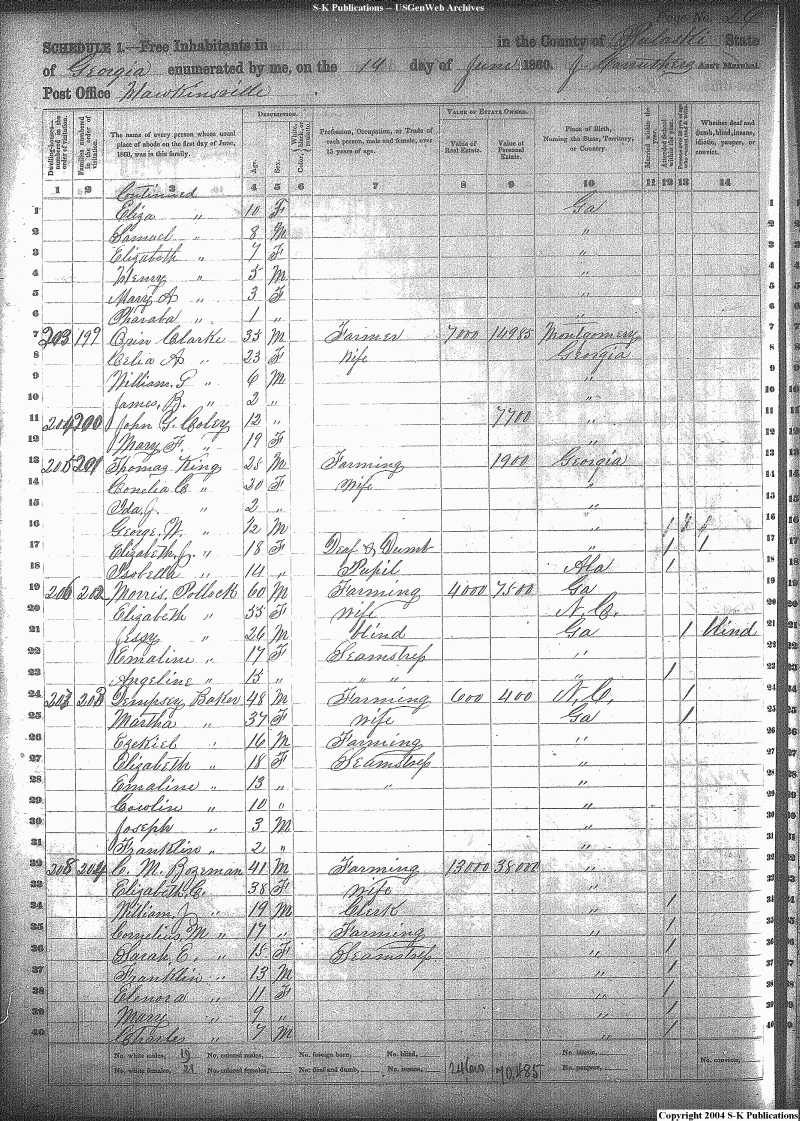 S-K Publications – USGenWeb Archives
Page No. 26
SCHEDULE 1.—Free Inhabitants in in the County of Pulaski State
of Georgia enumerated by me, on the 19 day of June 1860. Ass't Marshal.
Post Office Hawkinsville
Dwelling-houses—numbered in the order of visitation.
Families numbered in the order of visitation.
The name of every person whose usual place of abode on the first day of June, 1860, was in this family.
DESCRIPTION.
Age.
Sex.
Color, White, black, or mulatto.
Profession, Occupation, or Trade of each person, male and female, over 15 years of age.
VALUE OF ESTATE OWNED.
Value of Real Estate.
Value of Personal Estate.
Place of Birth, Naming the State, Territory, or Country.
Married within the year.
Attended School within the year.
Whether deaf and dumb, blind, insane, idiotic, pauper, or convict.
1 2 3 4 5 6 7 8 9 10 11 12 13 14
Continued
1 Eliza " 10 F Ga 1
2 Samuel " 8 M " 2
3 Elizabeth " 7 F " 3
4 Henry " 5 M " 4
5 Mary A " 3 F " 5
6 Pharaba " 1 " " 6
7 203 199 Clarke 35 M Farmer 7000 14985 Montgomery 7
8 Celia A " 23 F Wife Georgia 8
9 William " 6 M " 9
10 James B. " 2 " " 10
11 204 200 John G. Coley 12 " 7700 " 11
12 Mary F. " 19 F " 12
13 205 201 Thomas King 28 M Farming 1900 Georgia 13
14 Conelia C " 20 F Wife " 14
15 Ida J. " 2 " " 15
16 George W. " M " 1 1 1 16
17 Elizabeth J. " 18 F Deaf & Dumb " 1 1 17
18 Isobella " 14 " Pupil Ala 1 18
19 206 202 Morris Pollock 60 M Farming 4000 7500 Ga 19
20 Elizabeth " 55 F wife N.C. 20
21 " 26 M blind Ga 1 blind 21
22 Emaline " 17 F Seamstress " 22
23 Angeline " 15 " " " " 1 23
24 207 203 Dempsey Baker 48 M Farming 600 400 N.C. 1 24
25 Martha " 37 F wife Ga 1 25
26 Ezekiel " 16 M Farming " 26
27 Elizabeth " 18 F Seamstress " 27
28 Emaline " 13 " " " 28
29 Cowlin " 10 " " 29
30 Joseph " 3 M " 30
31 Franklin " 2 " " 31
32 208 204 C. M. Bozeman 41 M Farming 13000 38000 " 32
33 Elizabeth C. 38 F wife " 33
34 William J " 19 M Clerk " 1 34
35 Cornelius M " 17 " Farming " 1 35
36 Sarah E. " 15 F Seamstress " 1 36
37 Franklin " 13 M " 1 37
38 Elenora " 11 F " 1 38
39 Mary " 9 " " 1 39
40 Charles " 7 M " 1 40
No. white males, 19 No. colored males, No. foreign born, No. blind, No. idiotic,
No. white females, 21 No. colored females, No. deaf and dumb, No. insane, 24600 70,485 No. pauper, No. convicts,
Copyright 2004 S-K Publications